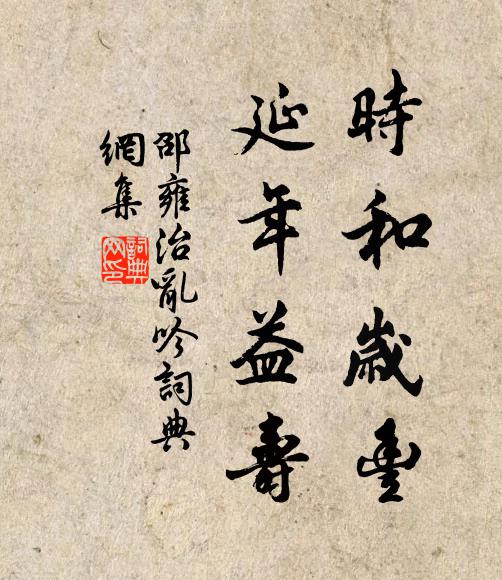 時和歲豐
延年益壽
邵雍治亂吟詞典
網集
詞典
网印